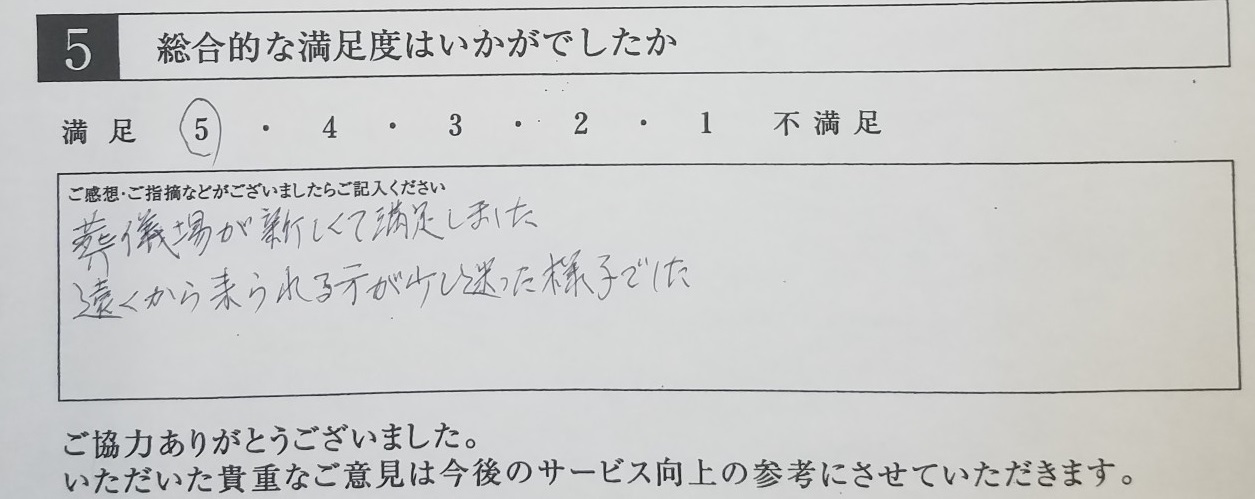 5 総合的な満足度はいかがでしたか
満足 5 ・ 4 ・ 3 ・ 2 ・ 1 不満足
ご感想・ご指摘などがございましたらご記入ください
葬儀場が新しくて満足しました
遠くから来られる方が少し迷った様子でした
ご協力ありがとうございました。
いただいた貴重なご意見は今後のサービス向上の参考にさせていただきます。